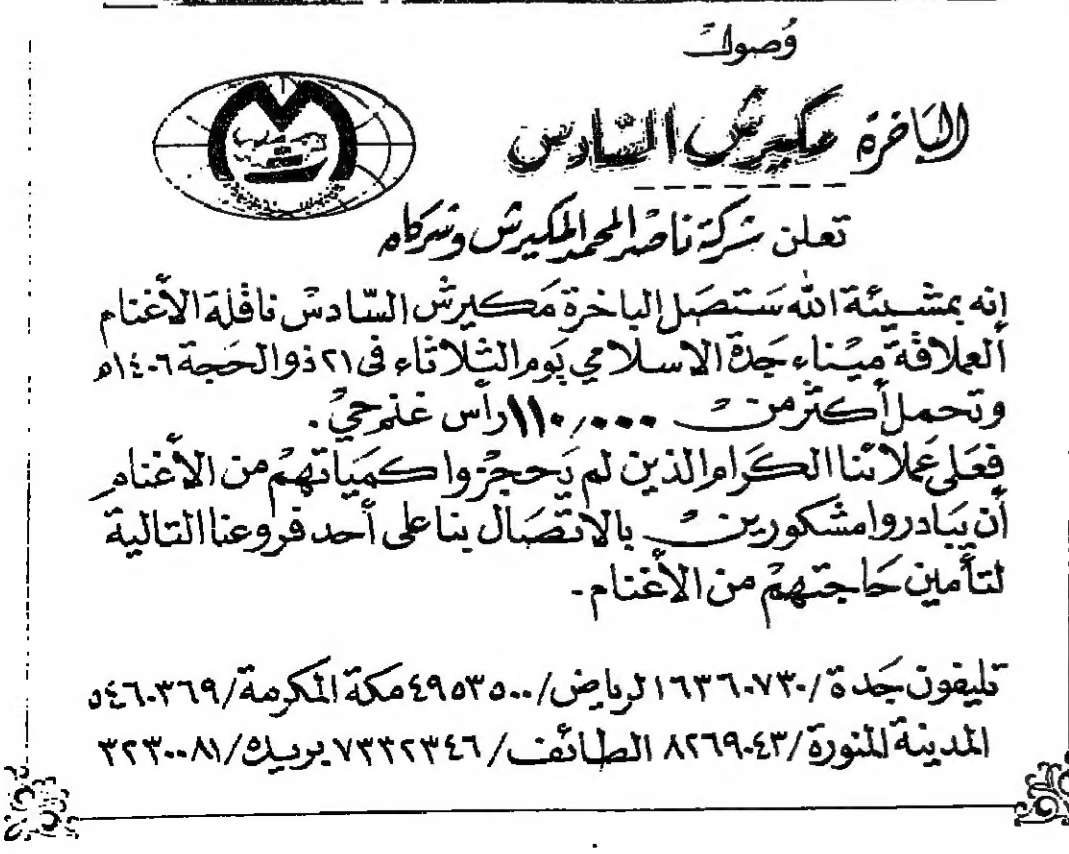 وُصول
البَاخرة مكيرش السَّادس
تعلن شركة ناصر المحمد المكيرش وشركاه
إنه بمشيئة الله سَتصَل الباخرة مَكيرش السَّادسْ ناقلة الأغنام
العملاقة ميْناء جَدة الاسلامي يَوم الثلاثاء في ٢١ ذو الحَجة ١٤٠٦هـ
وتحمل أكثر من ١١٠,٠٠٠ رأس غنم حيْ .
فعَلى عملائنا الكَرام الذين لم يَحجزوا كميَاتهمْ من الأغنام
أن يبَادروا مشكورين بالاتصَال بنا على أحد فروعنا التالية
لتأمين حَاجتهمْ من الأغنام -
تليفون جَدة / ٦٣٦٠٧٣٠ ١ الرياض / ٤٩٥٣٥٠٠ مكة المكرمة / ٥٤٦٠٣٦٩
المدينة المنورة / ٨٢٦٩٠٤٣ الطائف / ٧٣٣٢٣٤٦ بريدة / ٣٢٣٠٠٨١